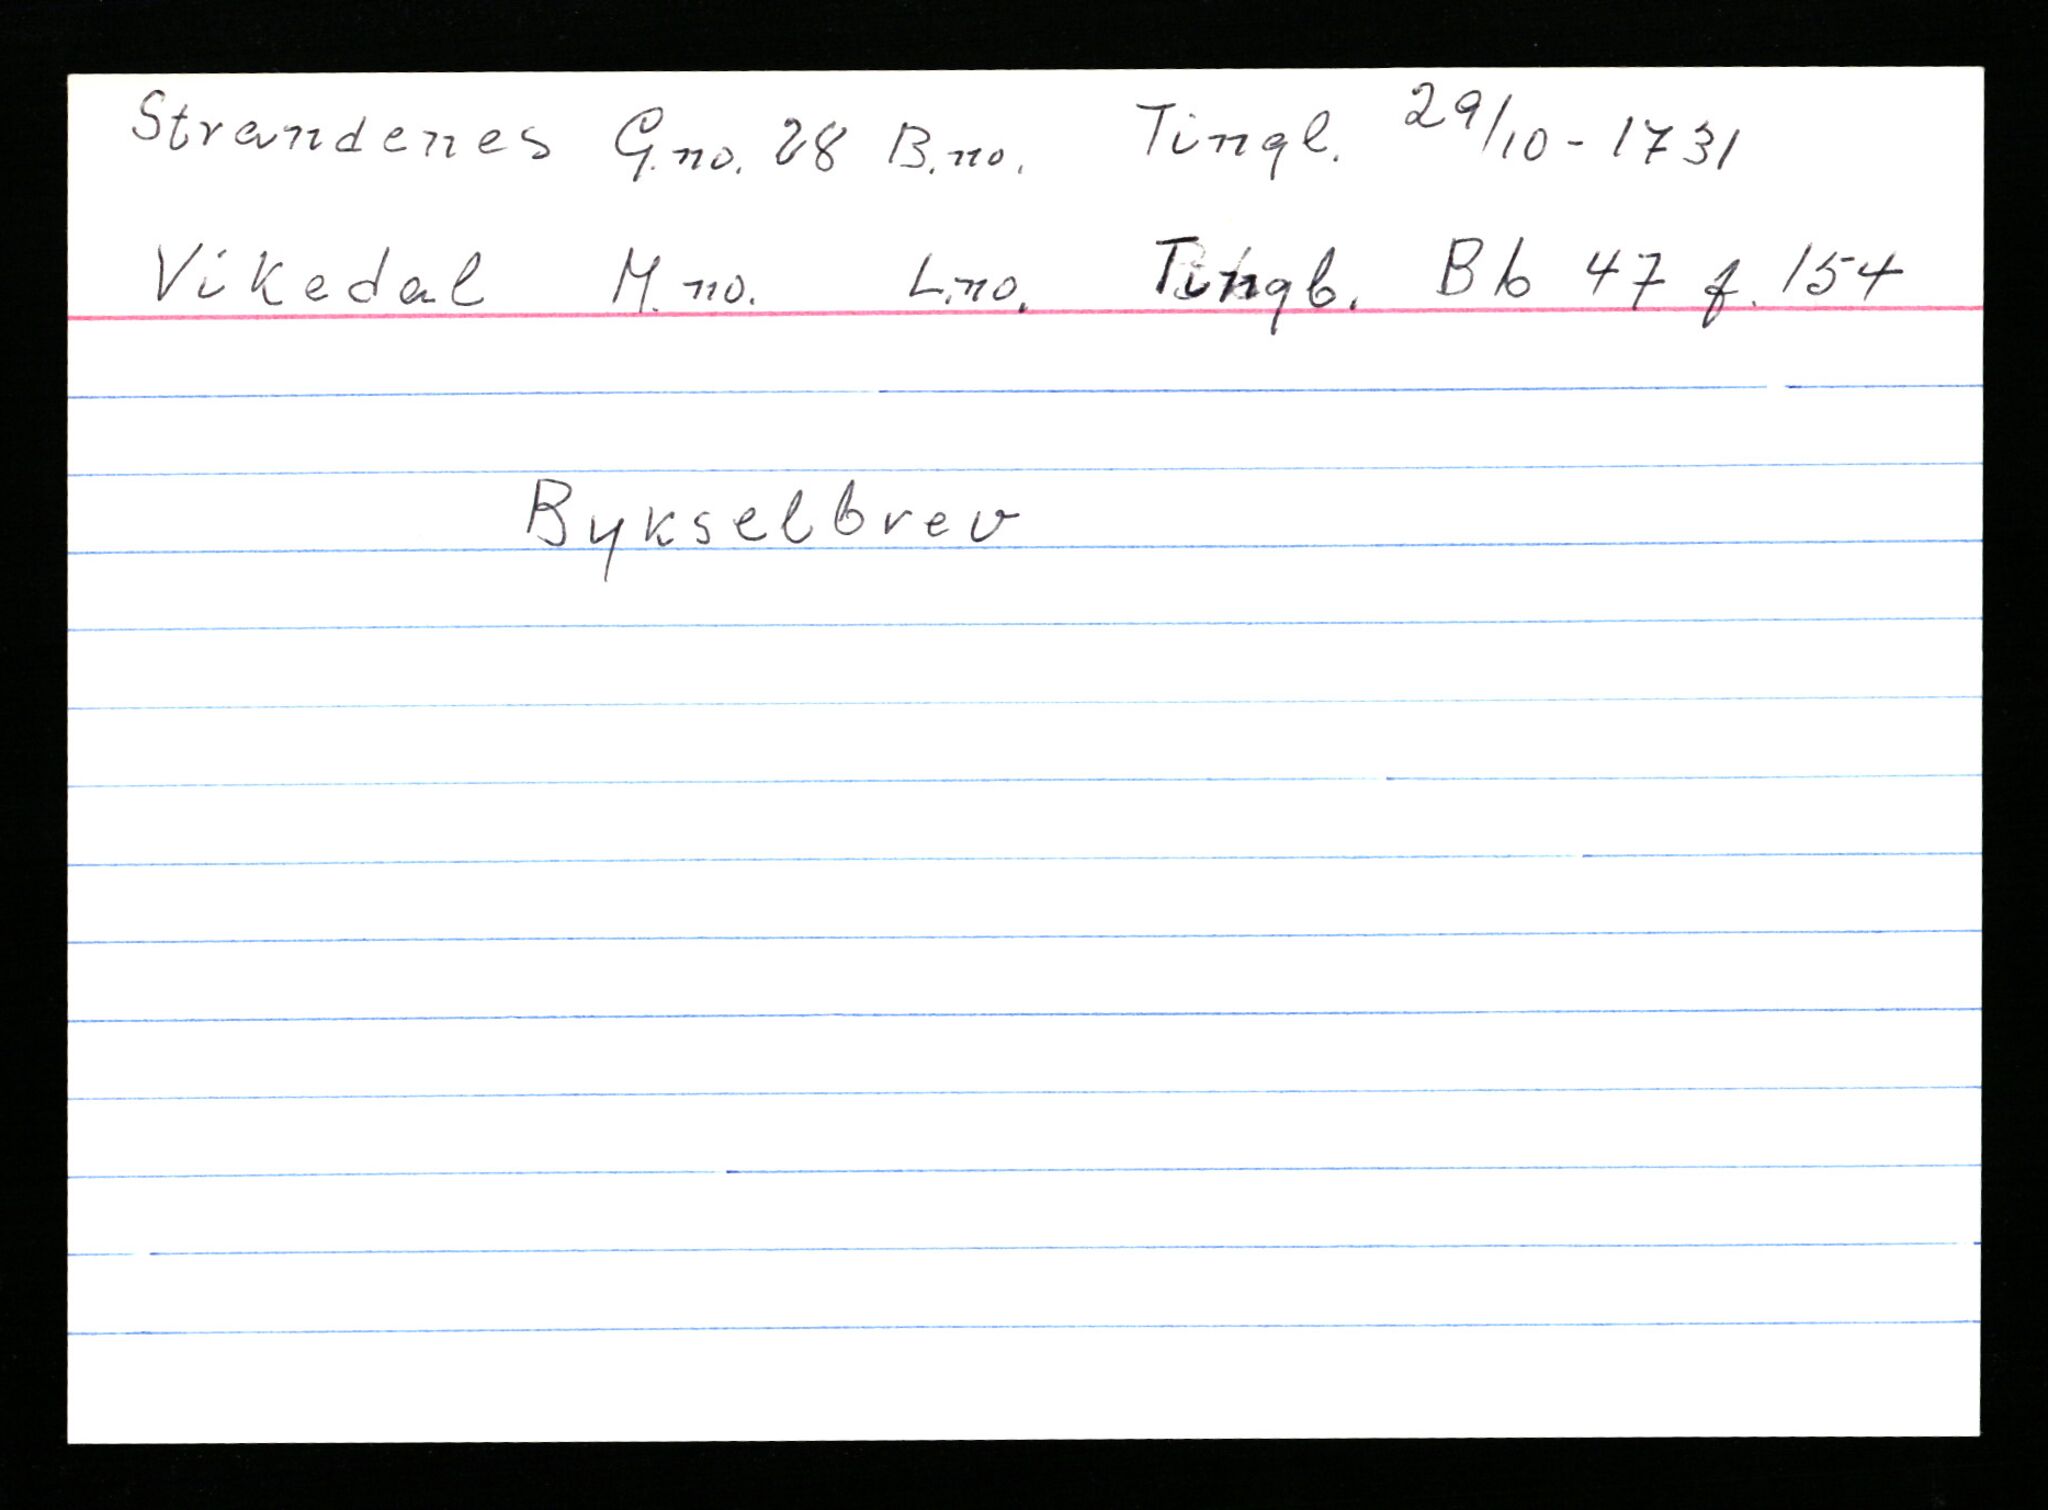 Strandenes G.no. 28 B.no. Tingl. 29/10-1731
Vikedal M.no. L.no. Tingb. Bb 47 f. 154
Bykselbrev